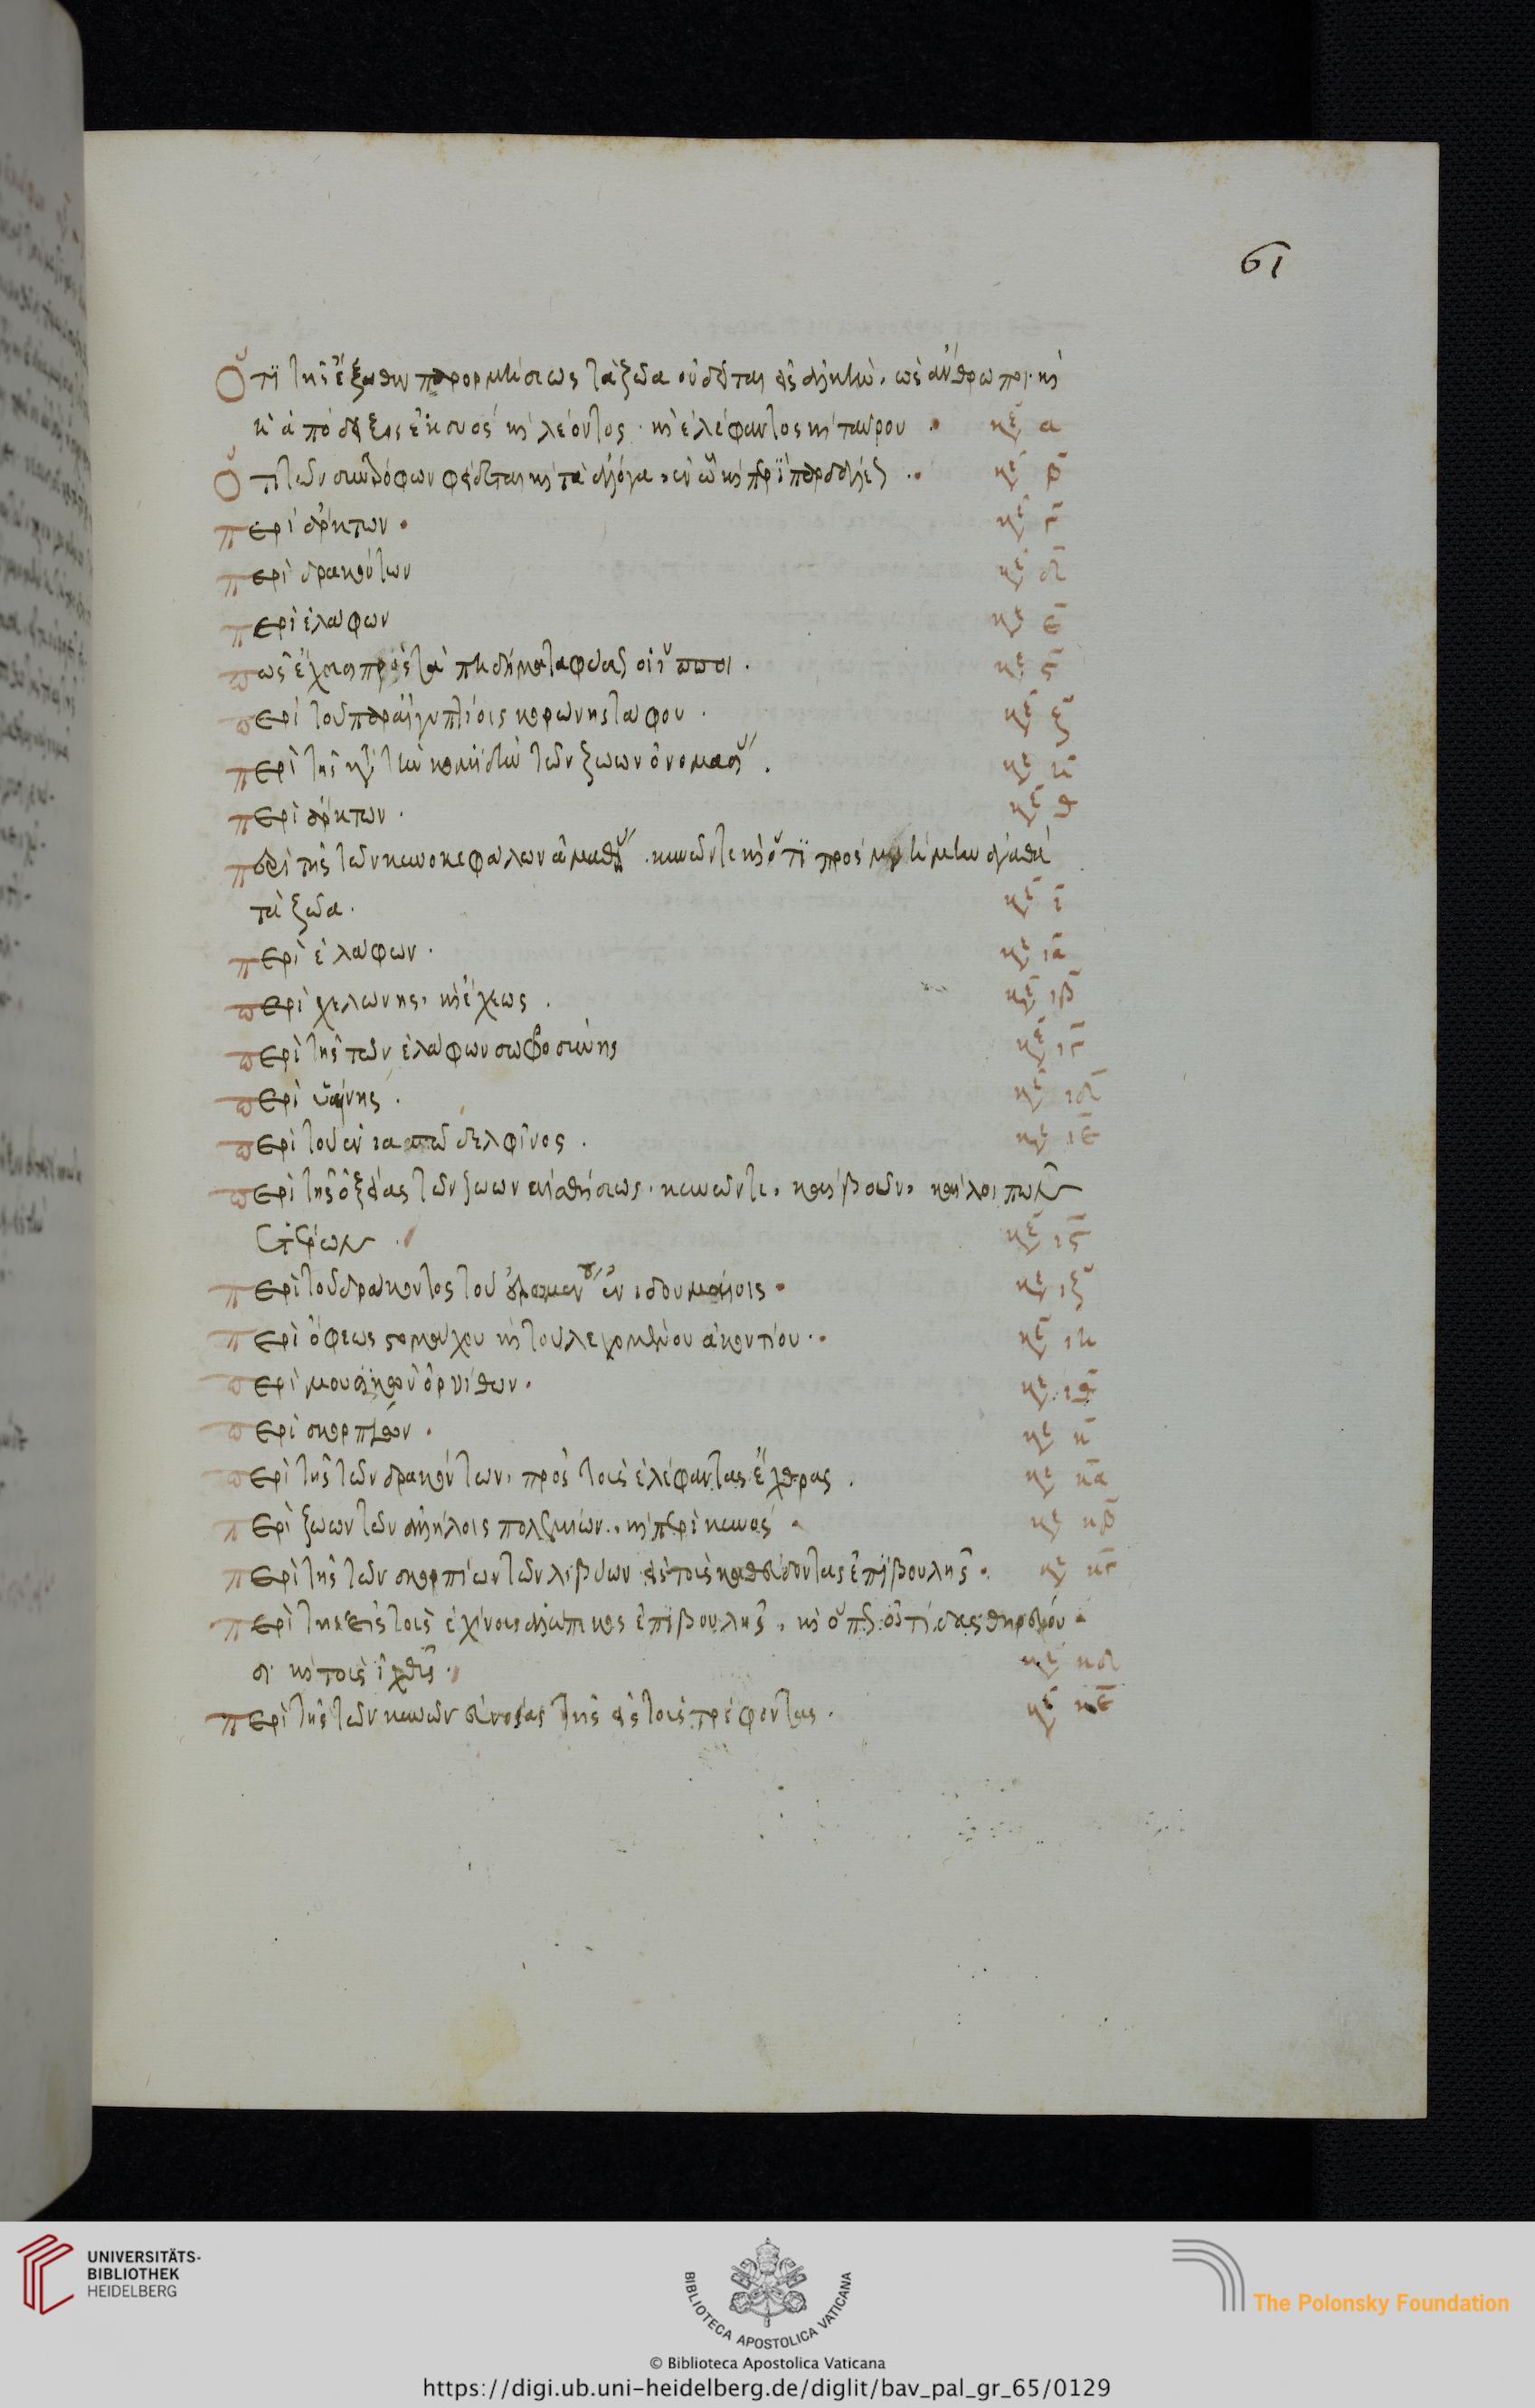 61
Ὅτι τῆς ἔξωθεν παρορμήσεως τὰ ζῶα οὐ δεῖται εἰς ἀλκὴν, ὡς ἄνθρωποι· καὶ
ἀπόδειξις ἐκ συὸς καὶ λέοντος· καὶ ἐλέφαντος καὶ ταύρου κε α
Ὅτι τῶν συντρόφων φείδεται καὶ τὰ ἄλογα, ἐν ᾧ καὶ περὶ παρδάλεως κε β
περὶ ἄρκτων κε γ
περὶ δρακόντων κε δ
περὶ ἐλάφων κε ε
πῶς ἔχουσι πρὸς τὰ πηδήματα φύσεως οἱ ἵπποι κε ϛ
περὶ τοῦ παρ' αἰγυπτίοις κορώνης τάφου κε ζ
περὶ τῆς κατὰ τὴν κομιδὴν τῶν ζώων ὀνομασίας κε η
περὶ ἄρκτων κε θ
περὶ τῆς τῶν κυνοκεφάλων εὐμαθείας. κυνῶν τε καὶ ὅτι πρὸς μνήμην ἀγαθὰ
τὰ ζῶα κε ι
περὶ ἐλάφων κε ια
περὶ χελώνης, καὶ ἔχεως κε ιβ
περὶ τῆς τῶν ἐλάφων σωφροσύνης κε ιγ
περὶ ὑαίνης κε ιδ
περὶ τοῦ ἐν ιασσῷ δελφῖνος κε ιε
περὶ τῆς ὀξείας τῶν ζώων αἰσθήσεως. κυνῶν τε, καὶ βοῶν, καὶ λοιπῶν
ἑτέρων κε ιϛ
περὶ τοῦ δράκοντος τοῦ ἐν ἰδουμαίοις κε ιζ
περὶ ὄφεως καὶ τοῦ λεγομένου ἀκοντίου κε ιη
περὶ μουσικῶν ὀρνίθων κε ιθ
περὶ σκορπίων κε κ
περὶ τῆς τῶν δρακόντων, πρὸς τοὺς ἐλέφαντας ἔχθρας κε κα
περὶ ζώων τῶν ἀλλήλοις πολεμίων, καὶ περὶ κυνός κε κβ
περὶ τῆς τῶν σκορπίων τῶν λιβύων εἰς τοὺς καθεύδοντας ἐπιβουλῆς κε κγ
περὶ τῆς εἰς τοὺς ἐχίνους ἀλώπεκος ἐπιβουλῆς, καὶ ὅπως ὠτίδας θηρῶν
καὶ τοὺς ἰχθῦς κε κδ
περὶ τῆς τῶν κυνῶν εὐνοίας τῆς εἰς τοὺς τρέφοντας κε κε
UNIVERSITÄTS-
BIBLIOTHEK
HEIDELBERG
BIBLIOTECA APOSTOLICA VATICANA
The Polonsky Foundation
© Biblioteca Apostolica Vaticana
https://digi.ub.uni-heidelberg.de/diglit/bav_pal_gr_65/0129